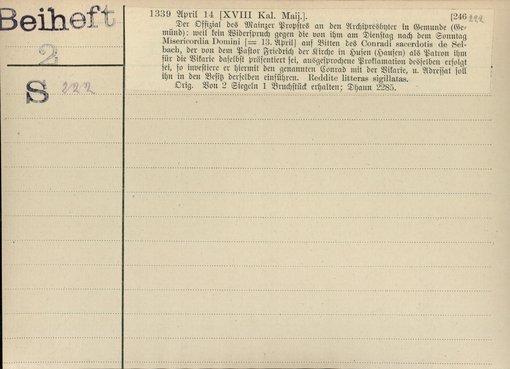 Beiheft
2
S 222
1339 April 14 [XVIII Kal. Maij.]. [246 222
Der Offizial des Mainzer Propstes an den Archipresbyter in Gemunde (Ge-
münd): weil kein Widerspruch gegen die von ihm am Dienstag nach dem Sonntag
Misericordia Domini [= 13. April] auf Bitten des Conradi sacerdotis de Sel-
bach, der von dem Pastor Friedrich der Kirche in Husen (Hausen) als Patron ihm
für die Vikarie daselbst präsentiert sei, ausgesprochene Proklamation desselben erfolgt
sei, so investiere er hiermit den genannten Conrad mit der Vikarie, u. Adressat soll
ihn in den Besitz derselben einführen. Reddite litteras sigillatas.
Orig. Von 2 Siegeln 1 Bruchstück erhalten; Dhaun 2285.